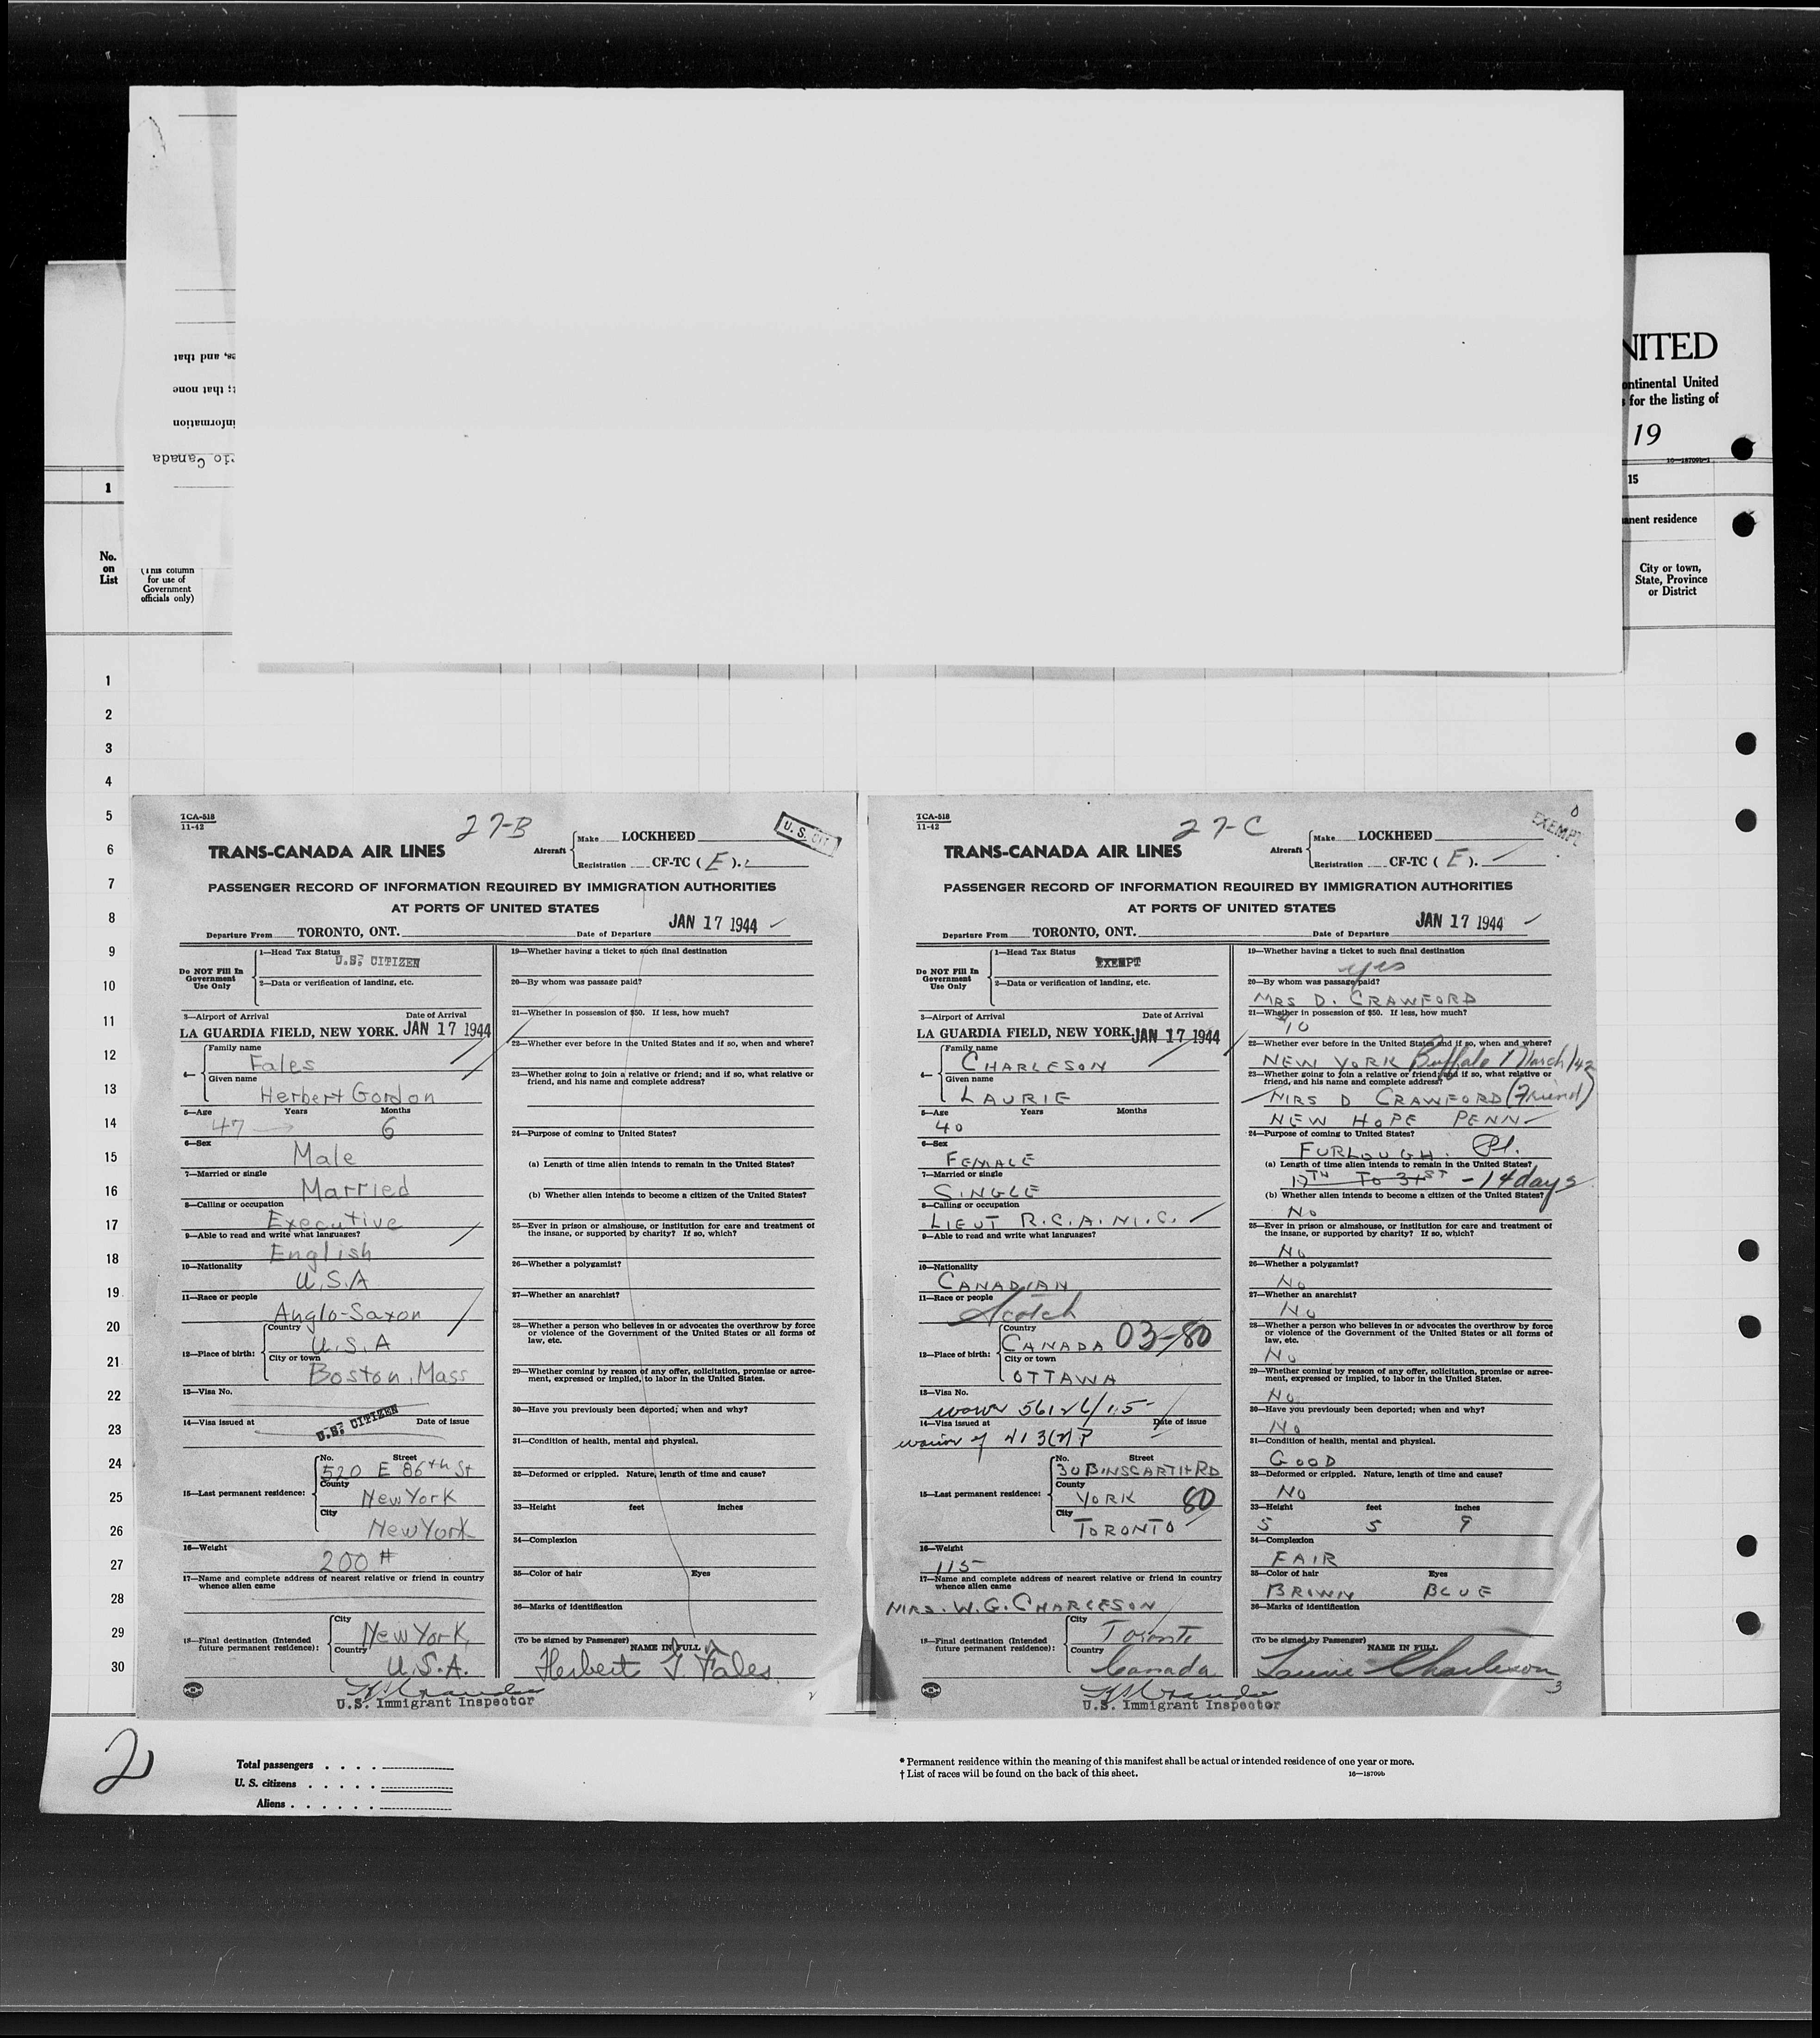 NITED
ontinental United
s for the listing of
19
16—18709b-1
s, and that
; that none
information
io Canada
1
15
anent residence
No.
on
List
(This column
for use of
Government
officials only)
City or town,
State, Province
or District
1
2
3
4
5
6
7
8
9
10
11
12
13
14
15
16
17
18
19
20
21
22
23
24
25
26
27
28
29
30
TCA-518
11-42
27-B
U. S. CIT
TRANS-CANADA AIR LINES
Aircraft
Make LOCKHEED
Registration CF-TC ( E ).
PASSENGER RECORD OF INFORMATION REQUIRED BY IMMIGRATION AUTHORITIES
AT PORTS OF UNITED STATES
Departure From TORONTO, ONT. Date of Departure JAN 17 1944
Do NOT Fill In
Government
Use Only
1—Head Tax Status
U.S. CITIZEN
2—Data or verification of landing, etc.
3—Airport of Arrival Date of Arrival
LA GUARDIA FIELD, NEW YORK. JAN 17 1944
4—
Family name
Fales
Given name
Herbert Gordon
5—Age Years Months
47 6
6—Sex
Male
7—Married or single
Married
8—Calling or occupation
Executive
9—Able to read and write what languages?
English
10—Nationality
U.S.A
11—Race or people
Anglo-Saxon
12—Place of birth:
Country
U.S.A
City or town
Boston, Mass
13—Visa No.
14—Visa issued at Date of issue
U.S. CITIZEN
15—Last permanent residence:
No. Street
520 E 86th St
County
New York
City
New York
16—Weight
200 #
17—Name and complete address of nearest relative or friend in country
whence alien came
18—Final destination (Intended
future permanent residence):
City
New York,
Country
U.S.A.
19—Whether having a ticket to such final destination
20—By whom was passage paid?
21—Whether in possession of $50. If less, how much?
22—Whether ever before in the United States and if so, when and where?
23—Whether going to join a relative or friend; and if so, what relative or
friend, and his name and complete address?
24—Purpose of coming to United States?
(a) Length of time alien intends to remain in the United States?
(b) Whether alien intends to become a citizen of the United States?
25—Ever in prison or almshouse, or institution for care and treatment of
the insane, or supported by charity? If so, which?
26—Whether a polygamist?
27—Whether an anarchist?
28—Whether a person who believes in or advocates the overthrow by force
or violence of the Government of the United States or all forms of
law, etc.
29—Whether coming by reason of any offer, solicitation, promise or agree-
ment, expressed or implied, to labor in the United States.
30—Have you previously been deported; when and why?
31—Condition of health, mental and physical.
32—Deformed or crippled. Nature, length of time and cause?
33—Height feet inches
34—Complexion
35—Color of hair Eyes
36—Marks of identification
(To be signed by Passenger)
NAME IN FULL
Herbert G Fales
U.S. Immigrant Inspector
2
TCA-518
11-42
27-C
EXEMPT
TRANS-CANADA AIR LINES
Aircraft
Make LOCKHEED
Registration CF-TC ( E ).
PASSENGER RECORD OF INFORMATION REQUIRED BY IMMIGRATION AUTHORITIES
AT PORTS OF UNITED STATES
Departure From TORONTO, ONT. Date of Departure JAN 17 1944
Do NOT Fill In
Government
Use Only
1—Head Tax Status
EXEMPT
2—Data or verification of landing, etc.
3—Airport of Arrival Date of Arrival
LA GUARDIA FIELD, NEW YORK. JAN 17 1944
4—
Family name
CHARLESON
Given name
LAURIE
5—Age Years Months
40
6—Sex
FEMALE
7—Married or single
SINGLE
8—Calling or occupation
LIEUT R.C.A.M.C.
9—Able to read and write what languages?
10—Nationality
CANADIAN
11—Race or people
Scotch
12—Place of birth:
Country
CANADA 03-80
City or town
OTTAWA
13—Visa No.
14—Visa issued at Date of issue
15—Last permanent residence:
No. Street
30 BINSCARTH RD
County
YORK 80
City
TORONTO
16—Weight
115
17—Name and complete address of nearest relative or friend in country
whence alien came
MRS. W.G. CHARLESON
18—Final destination (Intended
future permanent residence):
City
Toronto
Country
Canada
19—Whether having a ticket to such final destination
yes
20—By whom was passage paid?
MRS D. CRAWFORD
21—Whether in possession of $50. If less, how much?
10
22—Whether ever before in the United States and if so, when and where?
NEW YORK Buffalo March/42
23—Whether going to join a relative or friend; and if so, what relative or
friend, and his name and complete address?
MRS D CRAWFORD (Friend)
NEW HOPE PENN
24—Purpose of coming to United States?
FURLOUGH. Pl.
(a) Length of time alien intends to remain in the United States?
17TH TO 31ST - 14 days
(b) Whether alien intends to become a citizen of the United States?
No
25—Ever in prison or almshouse, or institution for care and treatment of
the insane, or supported by charity? If so, which?
No
26—Whether a polygamist?
No
27—Whether an anarchist?
No
28—Whether a person who believes in or advocates the overthrow by force
or violence of the Government of the United States or all forms of
law, etc.
No
29—Whether coming by reason of any offer, solicitation, promise or agree-
ment, expressed or implied, to labor in the United States.
No
30—Have you previously been deported; when and why?
No
31—Condition of health, mental and physical.
GOOD
32—Deformed or crippled. Nature, length of time and cause?
No
33—Height feet inches
5 5 9
34—Complexion
FAIR
35—Color of hair Eyes
BROWN BLUE
36—Marks of identification
(To be signed by Passenger)
NAME IN FULL
Laurie Charleson
3
U.S. Immigrant Inspector
2
Total passengers
U. S. citizens
Aliens
* Permanent residence within the meaning of this manifest shall be actual or intended residence of one year or more.
† List of races will be found on the back of this sheet.
16—18709b